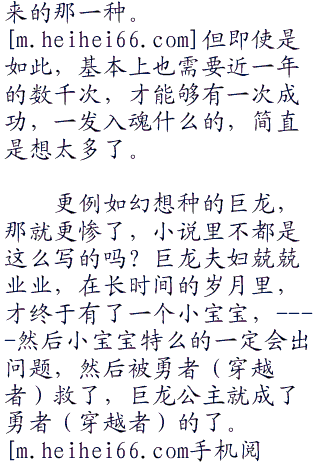 来的那一种。
[m.heihei66.com]但即使是
如此，基本上也需要近一年
的数千次，才能够有一次成
功，一发入魂什么的，简直
是想太多了。
更例如幻想种的巨龙，
那就更惨了，小说里不都是
这么写的吗？巨龙夫妇兢兢
业业，在长时间的岁月里，
才终于有了一个小宝宝，---
-然后小宝宝特么的一定会出
问题，然后被勇者（穿越
者）救了，巨龙公主就成了
勇者（穿越者）的了。
[m.heihei66.com手机阅